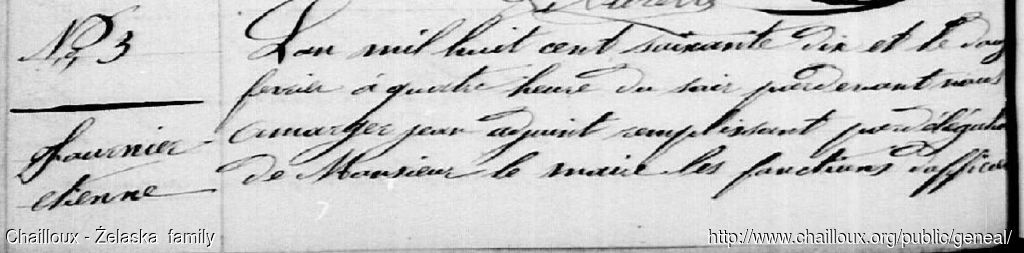 No 3
fournier
etienne
L'an mil huit cent soixante dix et le douz
fevrier à quatre heure du soir pardevant nous
amarger jean adjoint remplissant par délégation
de Monsieur le maire les fonctions d'officier
Chailloux - Żelaska family
http://www.chailloux.org/public/geneal/